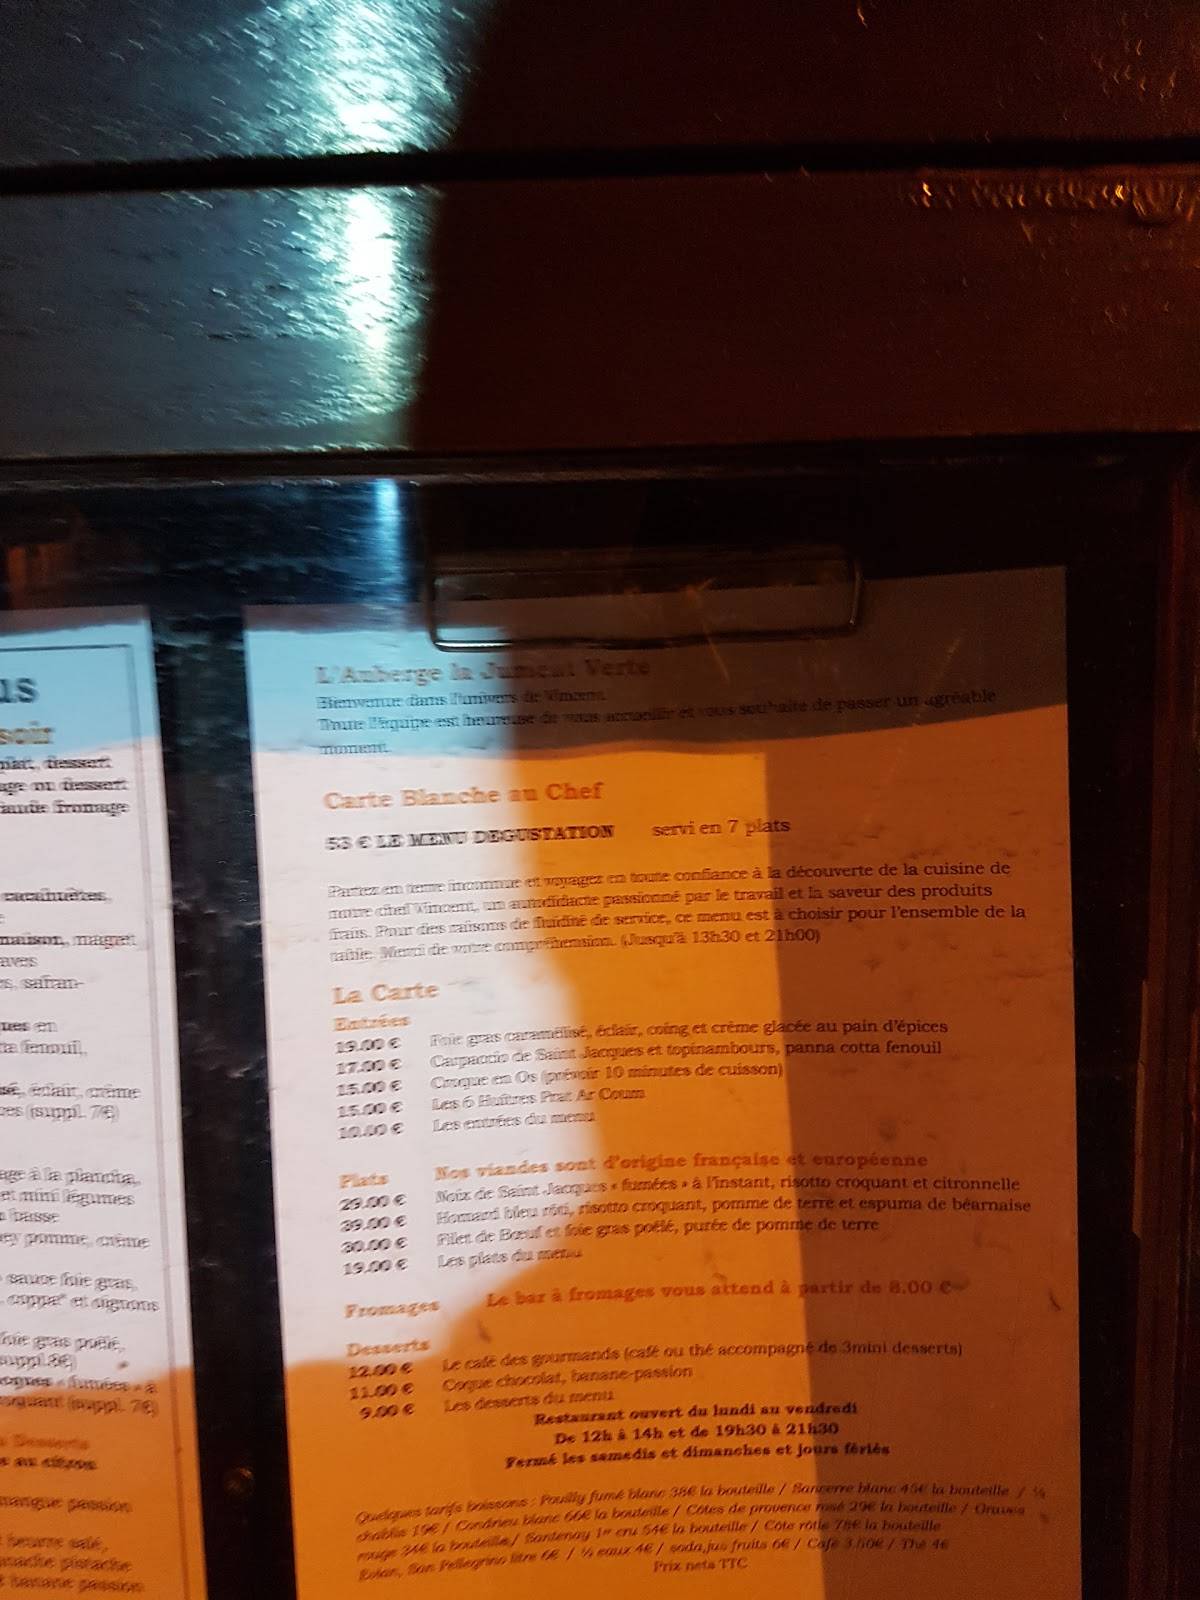 us
soir
plat, dessert
age ou dessert
iande fromage
cacahuètes,
maison, magret
aves
s, safran-
ues en
ta fenouil,
sé, éclair, crème
ces (suppl. 7€)
age à la plancha,
et mini légumes
basse
ey pomme, crème
sauce foie gras,
coppa" et oignons
foie gras poêlé,
suppl.8€)
acques « fumées » à
roquant (suppl. 7€)
Desserts
au citron
mangue passion
beurre salé,
pistache
banane passion
L'Auberge la Jument Verte
Bienvenue dans l'univers de Vincent.
Toute l'équipe est heureuse de vous accueillir et vous souhaite de passer un agréable
moment.
Carte Blanche au Chef
53 € LE MENU DEGUSTATION servi en 7 plats
Partez en terre inconnue et voyagez en toute confiance à la découverte de la cuisine de
notre chef Vincent, un autodidacte passionné par le travail et la saveur des produits
frais. Pour des raisons de fluidité de service, ce menu est à choisir pour l'ensemble de la
table. Merci de votre compréhension. (Jusqu'à 13h30 et 21h00)
La Carte
Entrées
19.00 € Foie gras caramélisé, éclair, coing et crème glacée au pain d'épices
17.00 € Carpaccio de Saint Jacques et topinambours, panna cotta fenouil
15.00 € Croque en Os (prévoir 10 minutes de cuisson)
15.00 € Les 6 Huîtres Prat Ar Coum
10.00 € Les entrées du menu
Plats Nos viandes sont d'origine française et européenne
29.00 € Noix de Saint Jacques « fumées » à l'instant, risotto croquant et citronnelle
39.00 € Homard bleu rôti, risotto croquant, pomme de terre et espuma de béarnaise
30.00 € Filet de Bœuf et foie gras poêlé, purée de pomme de terre
19.00 € Les plats du menu
Fromages Le bar à fromages vous attend à partir de 8.00 €
Desserts
12.00 € Le café des gourmands (café ou thé accompagné de 3mini desserts)
11.00 € Coque chocolat, banane-passion
9.00 € Les desserts du menu
Restaurant ouvert du lundi au vendredi
De 12h à 14h et de 19h30 à 21h30
Fermé les samedis et dimanches et jours fériés
Quelques tarifs boissons : Pouilly fumé blanc 38€ la bouteille / Sancerre blanc 45€ la bouteille / ½
chablis 19€ / Condrieu blanc 66€ la bouteille / Côtes de provence rosé 29€ la bouteille / Graves
rouge 34€ la bouteille/ Santenay 1er cru 54€ la bouteille / Côte rôtie 78€ la bouteille
Evian, San Pellegrino litre 6€ / ½ eaux 4€ / soda,jus fruits 6€ / Café 3.50€ / Thé 4€
Prix nets TTC